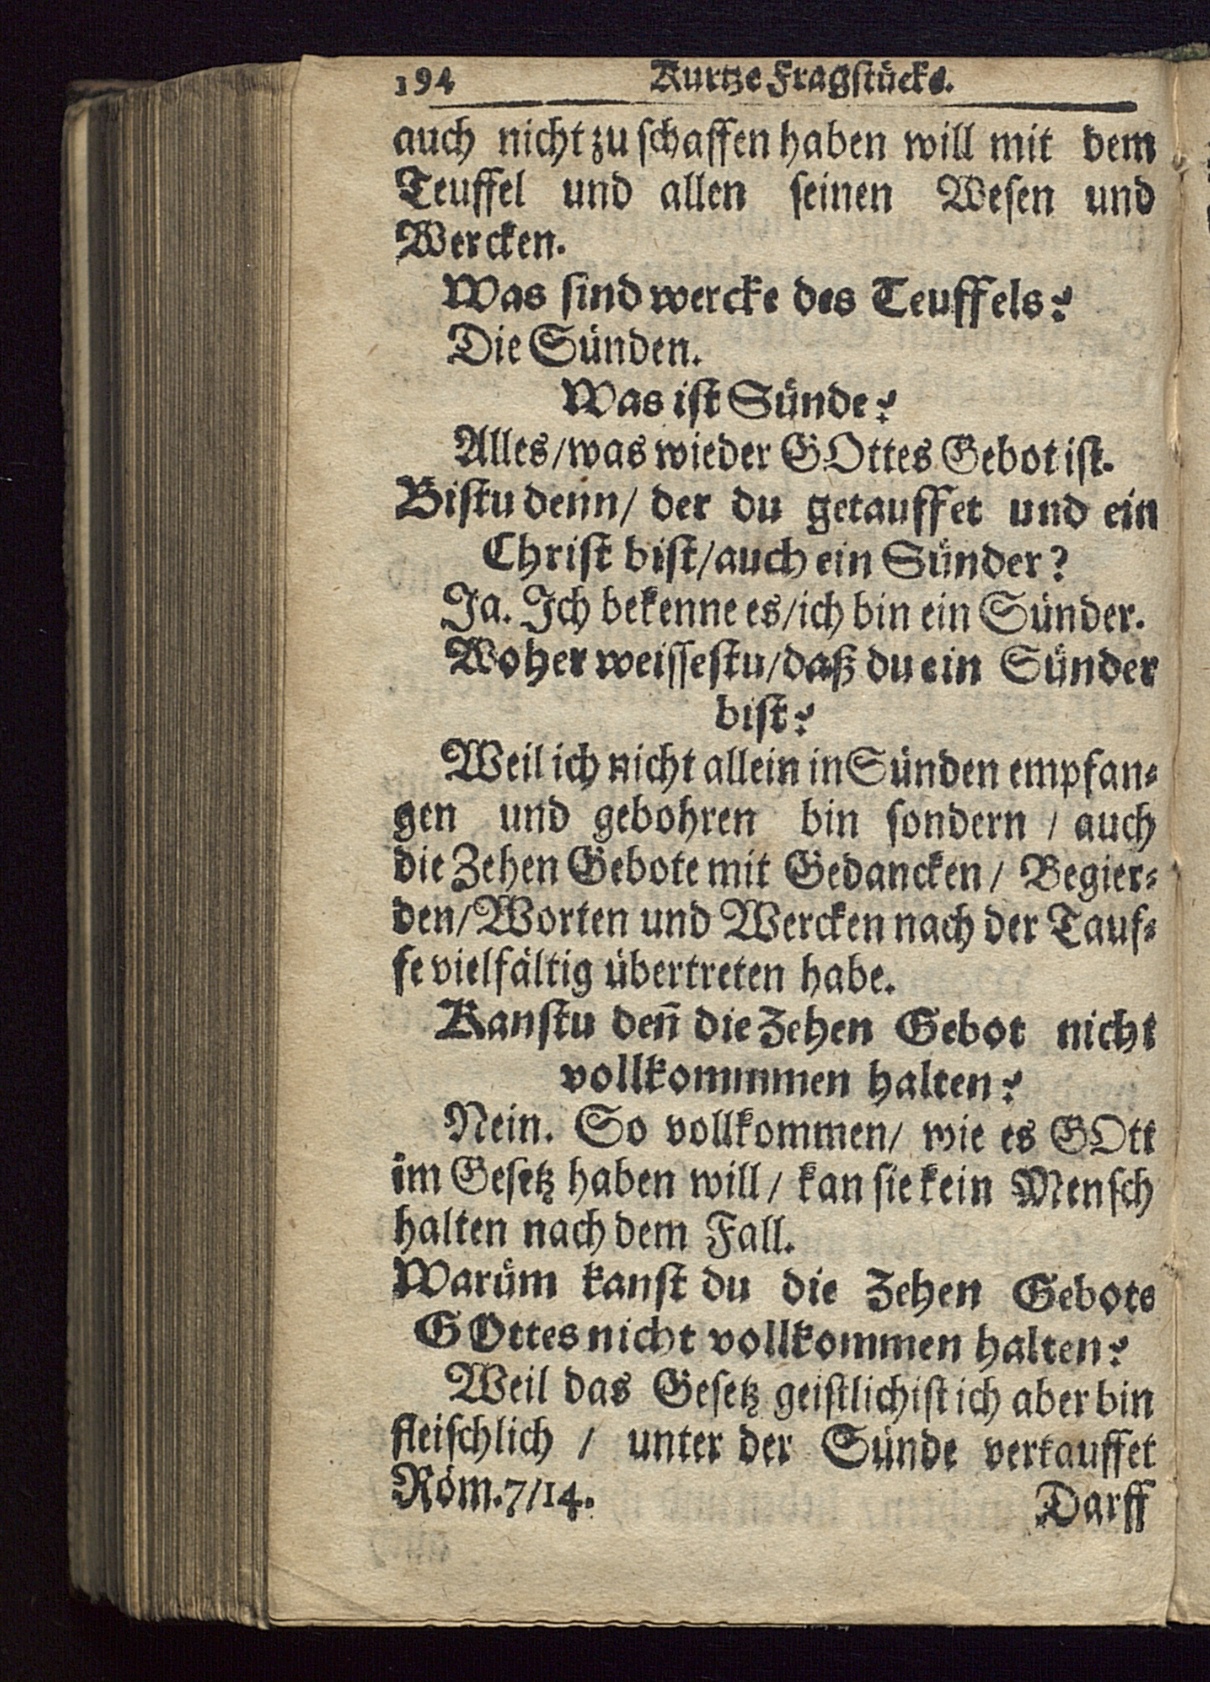 194 Kurtze Fragstücke.
auch nicht zu schaffen haben will mit dem
Teuffel und allen seinen Wesen und
Wercken.
Was sind wercke des Teuffels?
Die Sünden.
Was ist Sünde?
Alles/was wieder GOttes Gebot ist.
Bistu denn/ der du getauffet und ein
Christ bist/auch ein Sünder?
Ja. Ich bekenne es/ich bin ein Sünder.
Woher weissestu/daß du ein Sünder
bist?
Weil ich nicht allein in Sünden empfan-
gen und gebohren bin sondern / auch
die Zehen Gebote mit Gedancken/ Begier-
den/Worten und Wercken nach der Tauf-
fe vielfältig übertreten habe.
Kanstu deñ die Zehen Gebot nicht
vollkommmen halten?
Nein. So vollkommen/ wie es GOtt
im Gesetz haben will/ kan sie kein Mensch
halten nach dem Fall.
Warüm kanst du die Zehen Gebote
GOttes nicht vollkommen halten?
Weil das Gesetz geistlich ist ich aber bin
fleischlich / unter der Sünde verkauffet
Röm.7/14. Darff